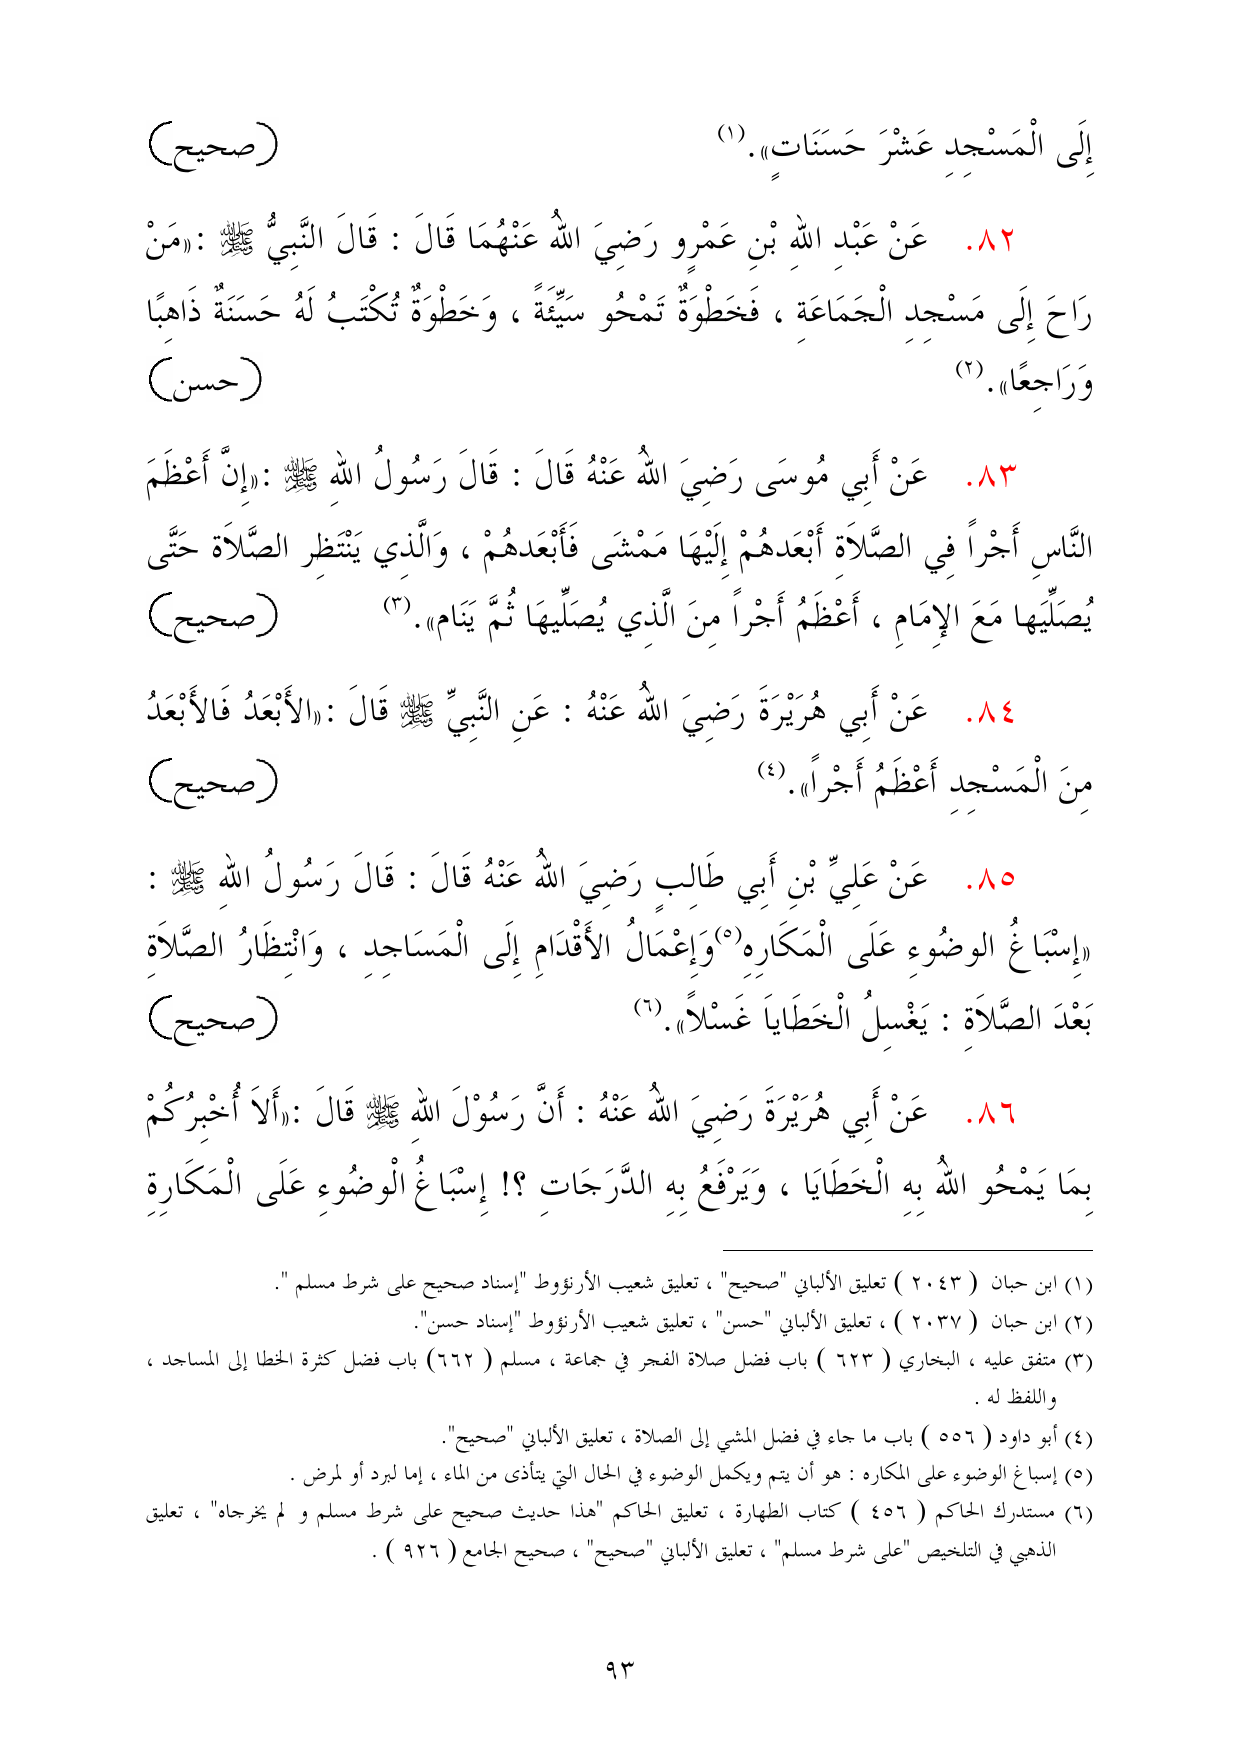 إِلَى الْمَسْجِدِ عَشْرَ حَسَنَاتٍ». (١) (صحيح)
٨٢. عَنْ عَبْدِ اللهِ بْنِ عَمْرٍو رَضِيَ اللهُ عَنْهُمَا قَالَ : قَالَ النَّبِيُّ ﷺ :«مَنْ
رَاحَ إِلَى مَسْجِدِ الْجَمَاعَةِ ، فَخَطْوَةٌ تَمْحُو سَيِّئَةً ، وَخَطْوَةٌ تُكْتَبُ لَهُ حَسَنَةٌ ذَاهِبًا
وَرَاجِعًا». (٢) (حسن)
٨٣. عَنْ أَبِي مُوسَى رَضِيَ اللهُ عَنْهُ قَالَ : قَالَ رَسُولُ اللهِ ﷺ :«إِنَّ أَعْظَمَ
النَّاسِ أَجْراً فِي الصَّلاَةِ أَبْعَدهُمْ إِلَيْهَا مَمْشَى فَأَبْعَدهُمْ ، وَالَّذِي يَنْتَظِر الصَّلاَة حَتَّى
يُصَلِّيَها مَعَ الإِمَامِ ، أَعْظَمُ أَجْراً مِنَ الَّذِي يُصَلِّيهَا ثُمَّ يَنَام». (٣) (صحيح)
٨٤. عَنْ أَبِي هُرَيْرَةَ رَضِيَ اللهُ عَنْهُ : عَنِ النَّبِيِّ ﷺ قَالَ :«الأَبْعَدُ فَالأَبْعَدُ
مِنَ الْمَسْجِدِ أَعْظَمُ أَجْراً». (٤) (صحيح)
٨٥. عَنْ عَلِيِّ بْنِ أَبِي طَالِبٍ رَضِيَ اللهُ عَنْهُ قَالَ : قَالَ رَسُولُ اللهِ ﷺ :
«إِسْبَاغُ الوضُوءِ عَلَى الْمَكَارِهِ(٥)وَإِعْمَالُ الأَقْدَامِ إِلَى الْمَسَاجِدِ ، وَانْتِظَارُ الصَّلاَةِ
بَعْدَ الصَّلاَةِ : يَغْسِلُ الْخَطَايَا غَسْلاً». (٦) (صحيح)
٨٦. عَنْ أَبِي هُرَيْرَةَ رَضِيَ اللهُ عَنْهُ : أَنَّ رَسُوْلَ اللهِ ﷺ قَالَ :«أَلاَ أُخْبِرُكُمْ
بِمَا يَمْحُو اللهُ بِهِ الْخَطَايَا ، وَيَرْفَعُ بِهِ الدَّرَجَاتِ ؟! إِسْبَاغُ الْوضُوءِ عَلَى الْمَكَارِةِ
(١) ابن حبان ( ٢٠٤٣ ) تعليق الألباني "صحيح" ، تعليق شعيب الأرنؤوط "إسناد صحيح على شرط مسلم ".
(٢) ابن حبان ( ٢٠٣٧ ) ، تعليق الألباني "حسن" ، تعليق شعيب الأرنؤوط "إسناد حسن".
(٣) متفق عليه ، البخاري ( ٦٢٣ ) باب فضل صلاة الفجر في جماعة ، مسلم ( ٦٦٢) باب فضل كثرة الخطا إلى المساجد ،
واللفظ له .
(٤) أبو داود ( ٥٥٦ ) باب ما جاء في فضل المشي إلى الصلاة ، تعليق الألباني "صحيح".
(٥) إسباغ الوضوء على المكاره : هو أن يتم ويكمل الوضوء في الحال التي يتأذى من الماء ، إما لبرد أو لمرض .
(٦) مستدرك الحاكم ( ٤٥٦ ) كتاب الطهارة ، تعليق الحاكم "هذا حديث صحيح على شرط مسلم و لم يخرجاه" ، تعليق
الذهبي في التلخيص "على شرط مسلم" ، تعليق الألباني "صحيح" ، صحيح الجامع ( ٩٢٦ ) .
٩٣